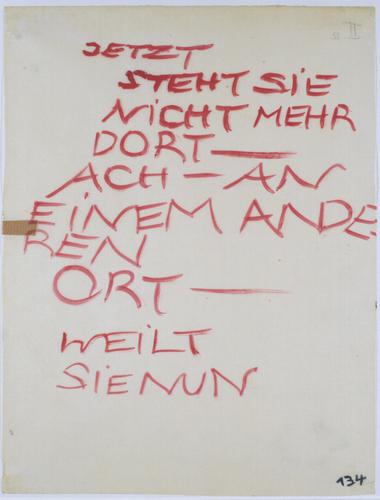 II
JETZT
STEHT SIE
NICHT MEHR
DORT —
ACH — AN
EINEM ANDE
REN
ORT —
WEILT
SIE NUN
134